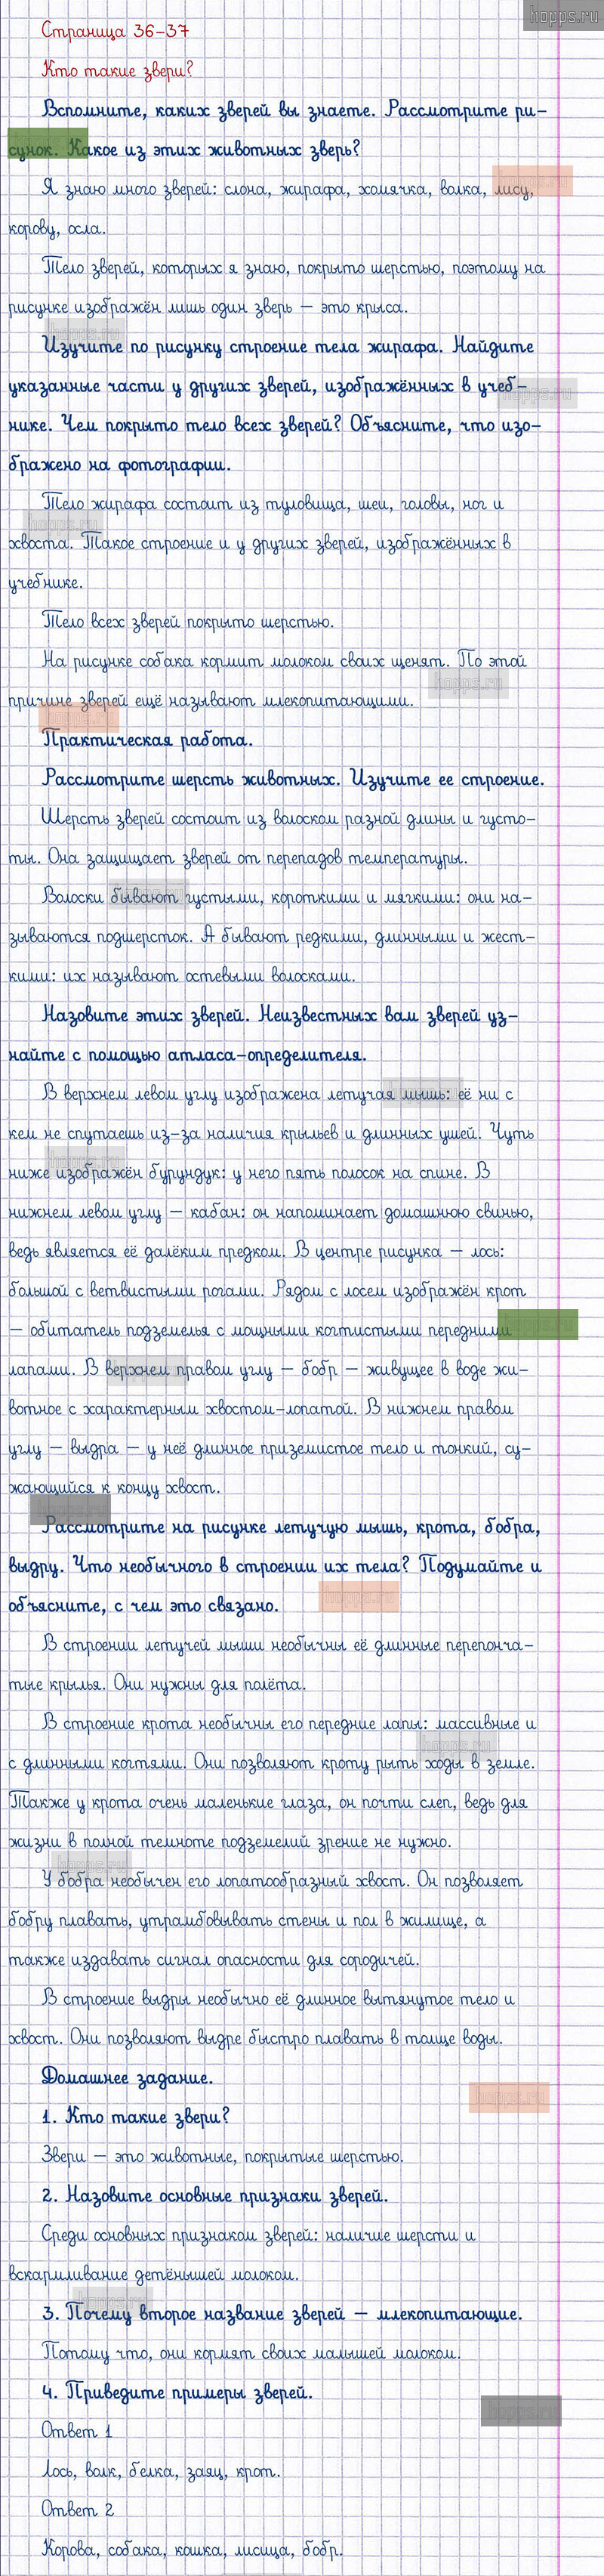 hopps.ru
Страница 36-37
Кто такие звери?
Вспомните, каких зверей вы знаете. Рассмотрите ри-
сунок. Какое из этих животных зверь?
Я знаю много зверей: слона, жирафа, хомячка, волка, лису,
корову, осла.
Тело зверей, которых я знаю, покрыто шерстью, поэтому на
рисунке изображён лишь один зверь – это крыса.
Изучите по рисунку строение тела жирафа. Найдите
указанные части у других зверей, изображённых в учеб-
нике. Чем покрыто тело всех зверей? Объясните, что изо-
бражено на фотографии.
Тело жирафа состоит из туловища, шеи, головы, ног и
хвоста. Такое строение и у других зверей, изображённых в
учебнике.
Тело всех зверей покрыто шерстью.
На рисунке собака кормит молоком своих щенят. По этой
причине зверей ещё называют млекопитающими.
Практическая работа.
Рассмотрите шерсть животных. Изучите ее строение.
Шерсть зверей состоит из волосков разной длины и густо-
ты. Она защищает зверей от перепадов температуры.
Волоски бывают густыми, короткими и мягкими: они на-
зываются подшерсток. А бывают редкими, длинными и жест-
кими: их называют остевыми волосками.
Назовите этих зверей. Неизвестных вам зверей уз-
найте с помощью атласа-определителя.
В верхнем левом углу изображена летучая мышь: её ни с
кем не спутаешь из-за наличия крыльев и длинных ушей. Чуть
ниже изображён бурундук: у него пять полосок на спине. В
нижнем левом углу – кабан: он напоминает домашнюю свинью,
ведь является её далёким предком. В центре рисунка – лось:
большой с ветвистыми рогами. Рядом с лосем изображён крот
– обитатель подземелья с мощными когтистыми передними
лапами. В верхнем правом углу – бобр – живущее в воде жи-
вотное с характерным хвостом-лопатой. В нижнем правом
углу – выдра – у неё длинное приземистое тело и тонкий, су-
жающийся к концу хвост.
Рассмотрите на рисунке летучую мышь, крота, бобра,
выдру. Что необычного в строении их тела? Подумайте и
объясните, с чем это связано.
В строении летучей мыши необычны её длинные перепонча-
тые крылья. Они нужны для полёта.
В строение крота необычны его передние лапы: массивные и
с длинными когтями. Они позволяют кроту рыть ходы в земле.
Также у крота очень маленькие глаза, он почти слеп, ведь для
жизни в полной темноте подземелий зрение не нужно.
У бобра необычен его лопатообразный хвост. Он позволяет
бобру плавать, утрамбовывать стены и пол в жилище, а
также издавать сигнал опасности для сородичей.
В строение выдры необычно её длинное вытянутое тело и
хвост. Они позволяют выдре быстро плавать в толще воды.
Домашнее задание.
1. Кто такие звери?
Звери – это животные, покрытые шерстью.
2. Назовите основные признаки зверей.
Среди основных признаков зверей: наличие шерсти и
вскармливание детёнышей молоком.
3. Почему второе название зверей – млекопитающие.
Потому что, они кормят своих малышей молоком.
4. Приведите примеры зверей.
Ответ 1
Лось, волк, белка, заяц, крот.
Ответ 2
Корова, собака, кошка, лисица, бобр.